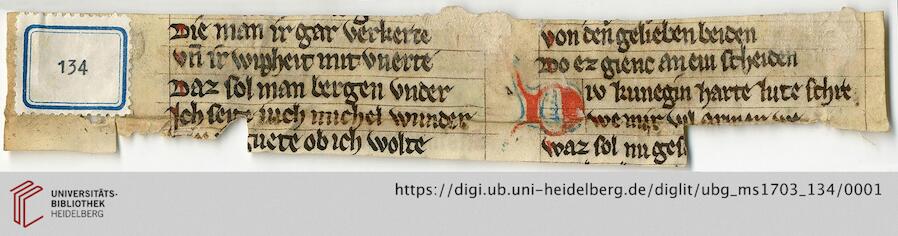 134
Die man ir gar verkerte
Vñ ir wipheit mit vnerte
Daz sol man bergen vnder
Ich seite iuch michel wunder
uete ob ich wolte
von den gelieben beiden
Do ez gienc an ein scheiden
Div kunegin harte lute schre
we mir
waz sol nu ges
UNIVERSITÄTS-
BIBLIOTHEK
HEIDELBERG
https://digi.ub.uni-heidelberg.de/diglit/ubg_ms1703_134/0001